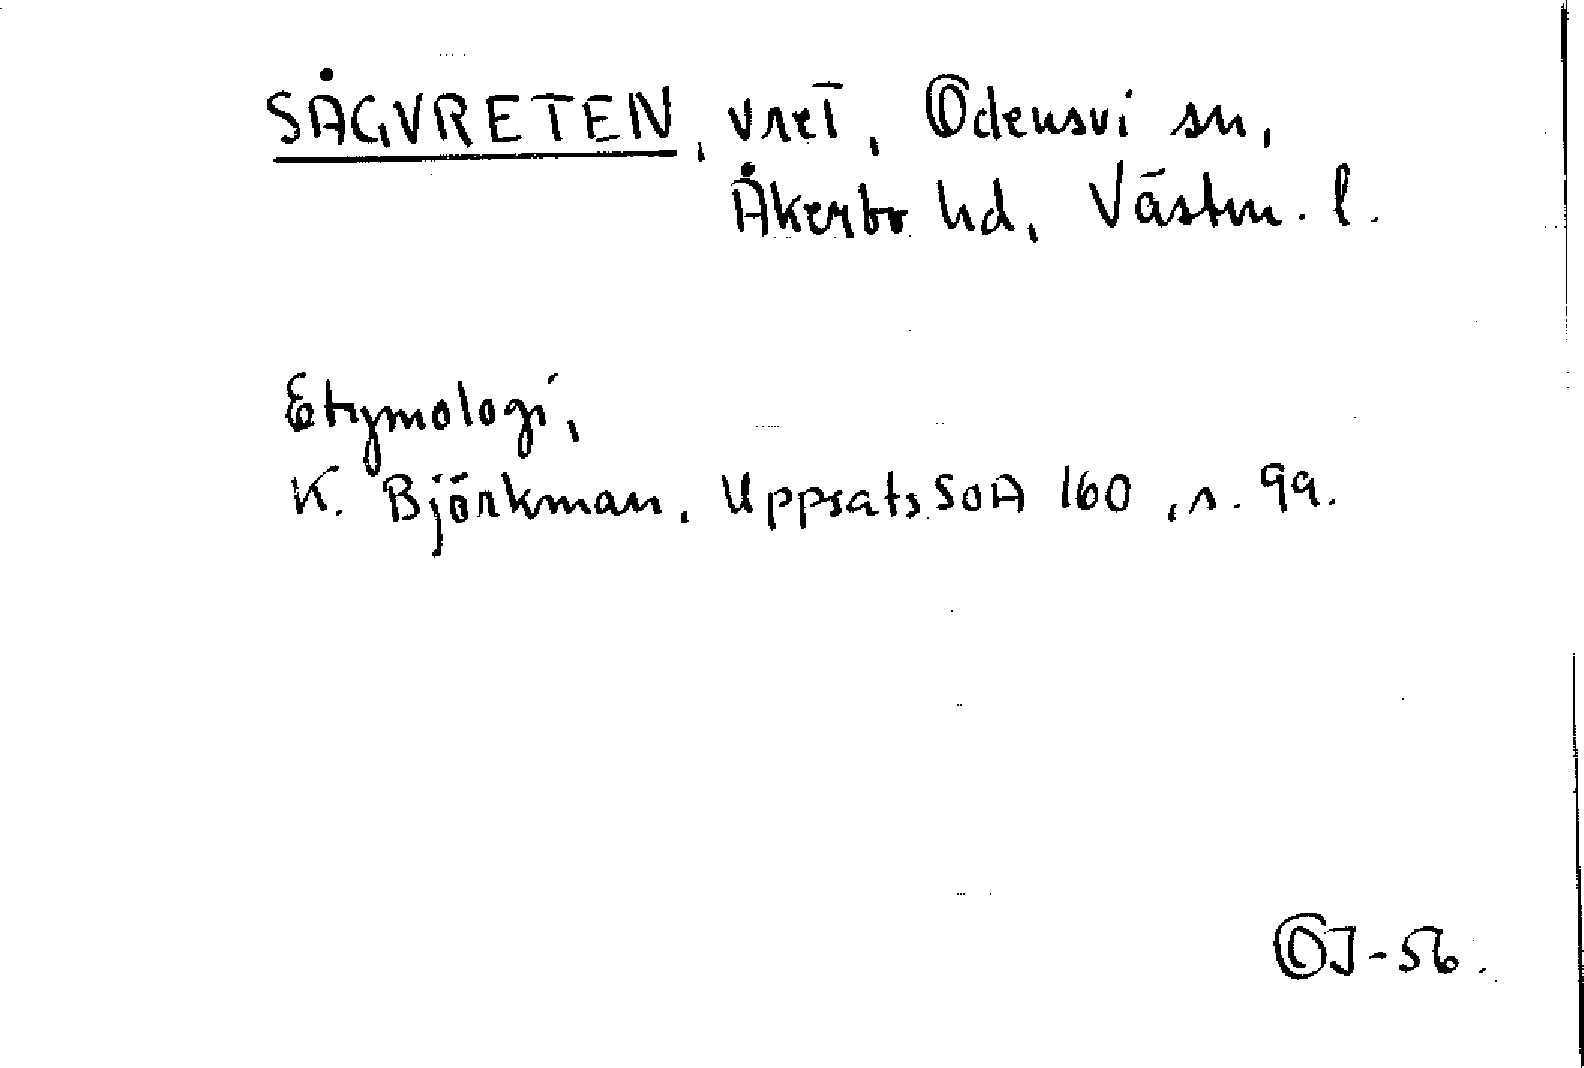 SÅGVRETEN, vret, Odensvi sn,
Åkerbo hd, Västm. l.
Etymologi,
K. Björkman, Uppsats SOA 160, s. 99.
OJ-56.